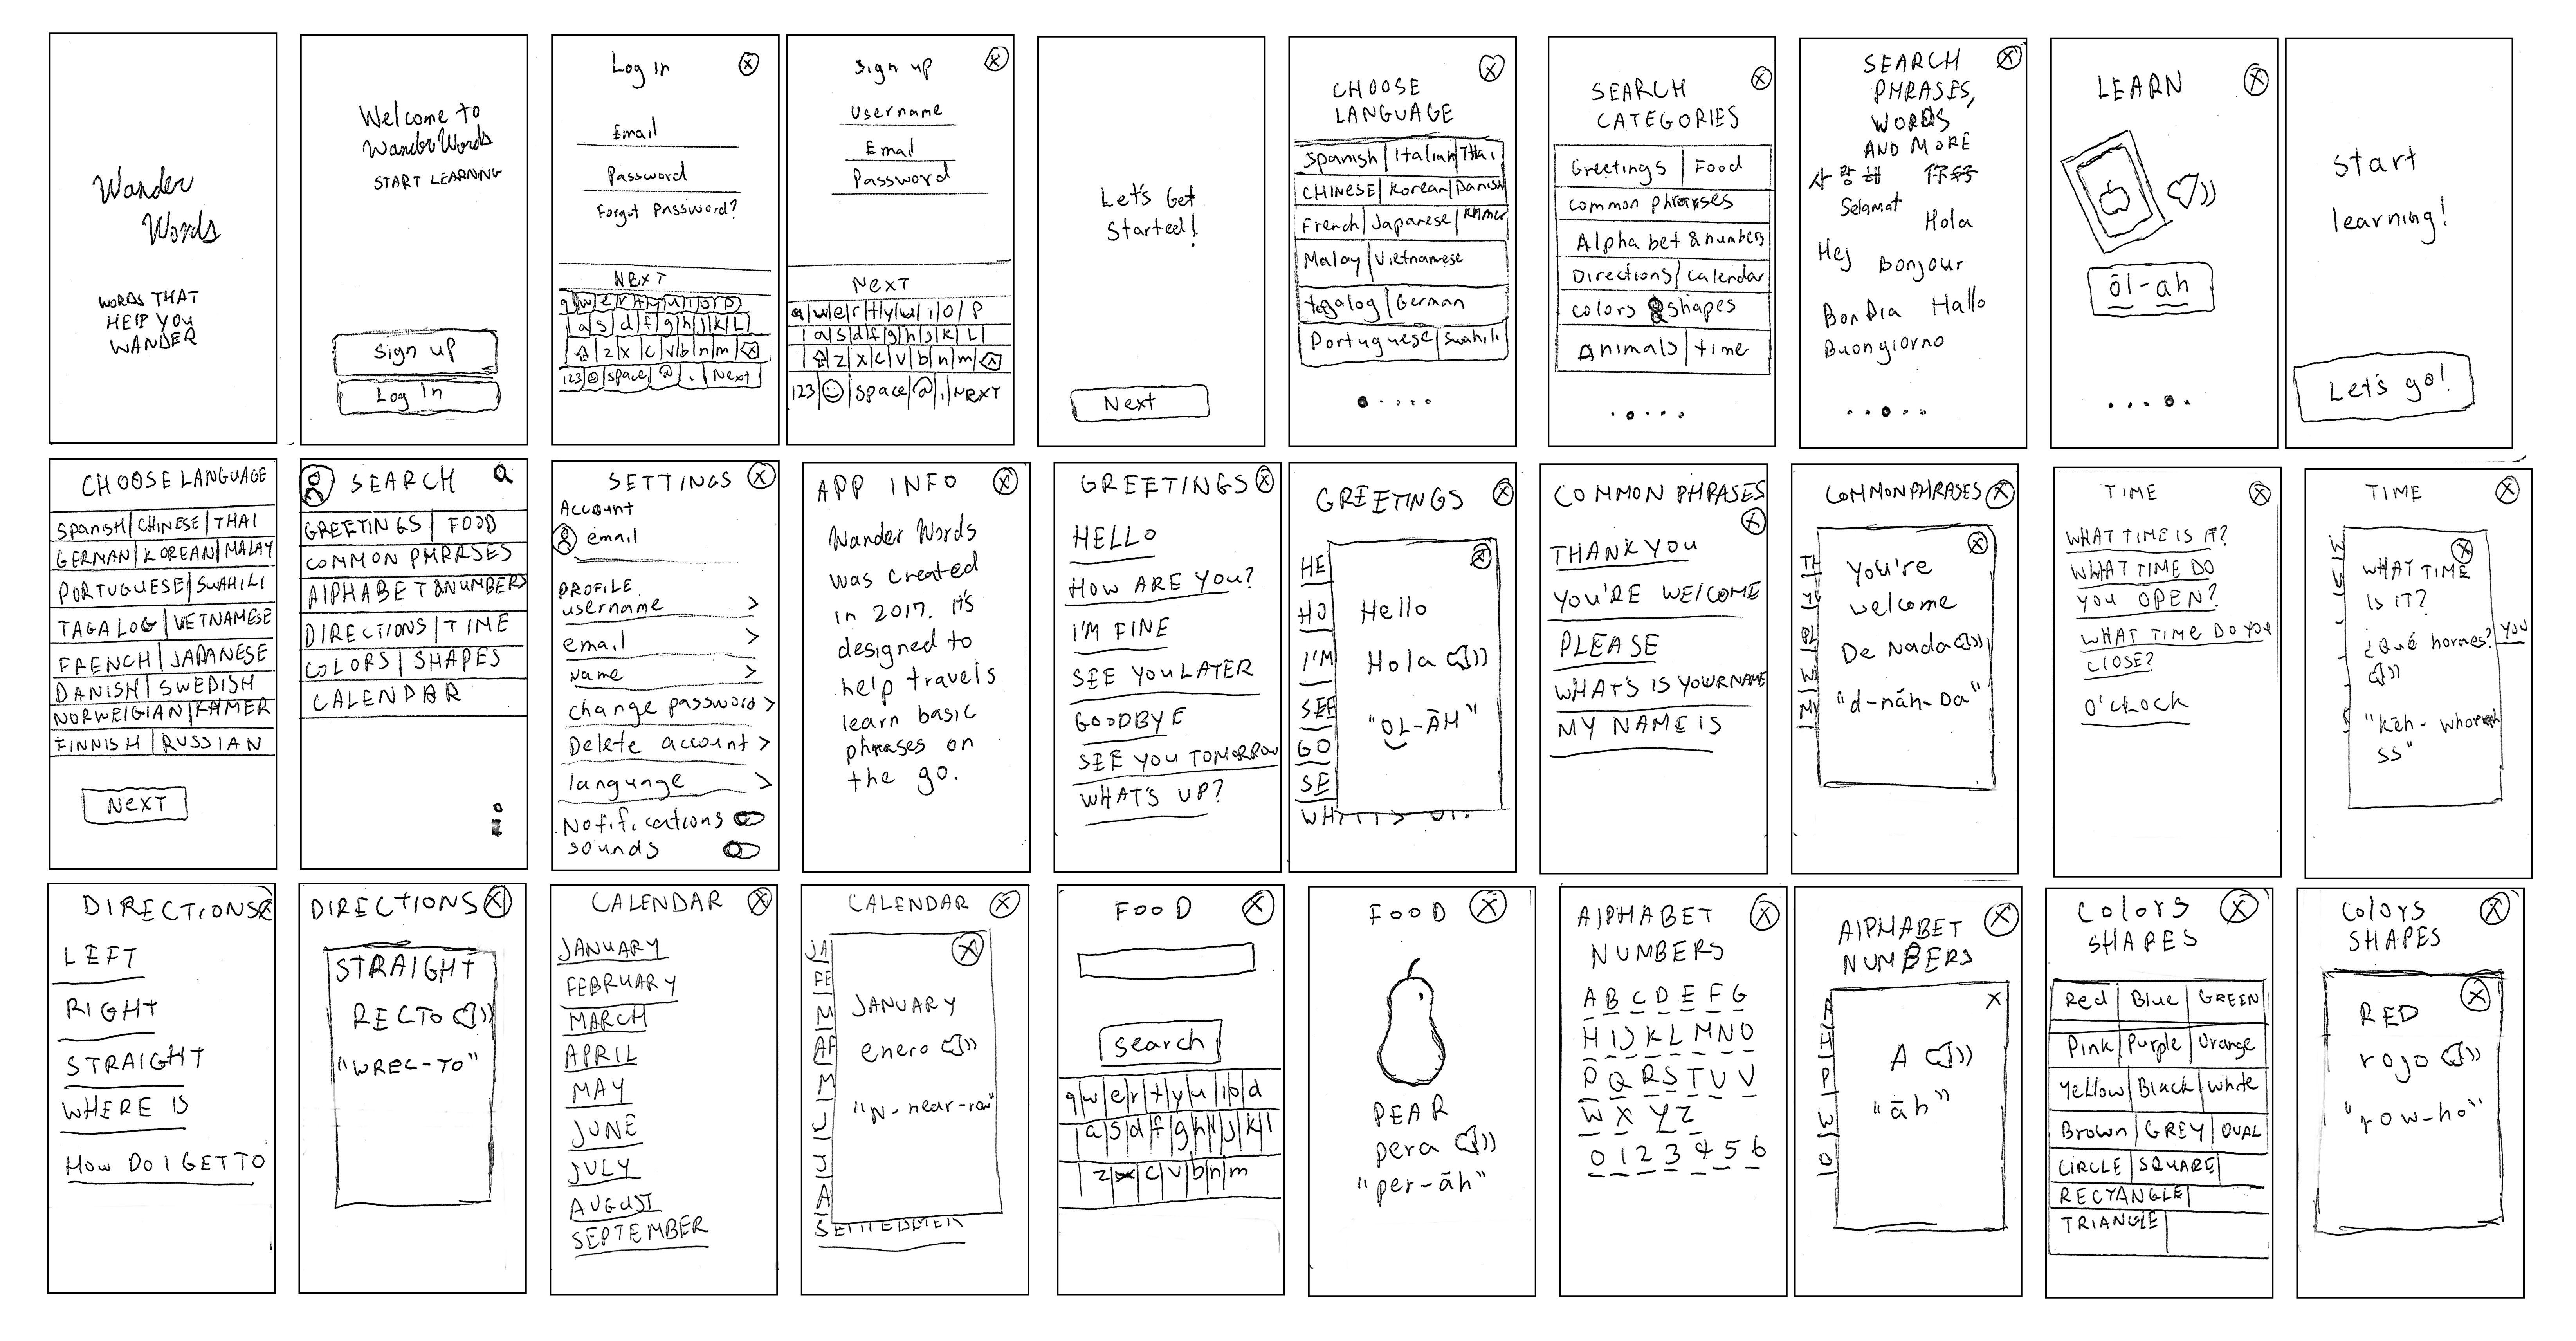 Wander
Words
WORDS THAT
HELP YOU
WANDER
Welcome to
WanderWords
START LEARNING
Sign up
Log In
Log In
Email
Password
Forgot Password?
NEXT
q w e r t y u i o p
a s d f g h j k L
z x c v b n m
123 space @ . Next
Sign up
Username
Email
Password
NEXT
q w e r t y u i o P
a s d f g h j k L
z x c v b n m
123 space @ . NEXT
Let's Get
Started!
Next
CHOOSE
LANGUAGE
Spanish Italian THai
CHINESE Korean Danish
French Japanese Khmer
Malay Vietnamese
Tagalog German
Portuguese Swahili
SEARCH
CATEGORIES
Greetings Food
common phrases
Alphabet & numbers
Directions calendar
colors & shapes
Animals time
SEARCH
PHRASES,
WORDS
AND MORE
사랑해 你好
Selamat
Hola
Hej
Bonjour
Bon Dia Hallo
Buongiorno
LEARN
ōl-ah
start
learning!
Let's go!
CHOOSE LANGUAGE
Spanish CHINESE THAI
GERMAN KOREAN MALAY
PORTUGUESE SWAHILI
TAGALOG VIETNAMESE
FRENCH JAPANESE
DANISH SWEDISH
NORWEIGIAN KHMER
FINNISH RUSSIAN
NEXT
SEARCH
GREETINGS FOOD
COMMON PHRASES
AlPHABET &NUMBERS
DIRECTIONS TIME
COLORS SHAPES
CALENDAR
SETTINGS X
Account
email
PROFILE
username >
email >
Name >
change password >
Delete account >
language >
Notifications
sounds
APP INFO X
Wander Words
was created
in 2017. it's
designed to
help travels
learn basic
phrases on
the go.
GREETINGS X
HELLO
HOW ARE YOU?
I'M FINE
SEE YOU LATER
GOODBYE
SEE YOU TOMORROW
WHAT'S UP?
GREETINGS X
HE
HO
I'M
SEE
GO
SE
Hello
Hola
"OL-ĀH"
COMMON PHRASES
X
THANK YOU
YOU'RE WELCOME
PLEASE
WHAT'S IS YOUR NAME
MY NAME IS
COMMON PHRASES X
TH
W
MY
You're
welcome
De Nada
"d-nāh-Da"
TIME X
WHAT TIME IS IT?
WHAT TIME DO
YOU OPEN?
WHAT TIME DO YOU
CLOSE?
O'CLOCK
TIME X
WHAT TIME
IS iT?
YOU
SS"
DIRECTIONS X
LEFT
RIGHT
STRAIGHT
WHERE IS
How Do I GET TO
DIRECTIONS X
STRAIGHT
RECTO
"WREC-TO"
CALENDAR X
JANUARY
FEBRUARY
MARCH
APRIL
MAY
JUNE
JULY
AUGUST
SEPTEMBER
CALENDAR X
JA
FE
M
AP
M
J
J
A
JANUARY
enero
"N-near-row"
FOOD X
search
q w e r t y u i o
a s d f g h j k l
z x c v b n m
FOOD X
PEAR
pera
"per-āh"
AlPHABET X
NUMBERS
A B C D E F G
H I J K L M N O
P Q R S T U V
W X Y Z
0 1 2 3 4 5 6
AlPHABET X
NUMBERS
A
H
P
W
0
X
A
"āh"
Colors X
SHAPES
Red Blue GREEN
Pink Purple Orange
Yellow Black White
Brown GREY OVAL
CIRCLE SQUARE
RECTANGLE
TRIANGLE
Colors X
SHAPES
RED
rojo
"row-ho"